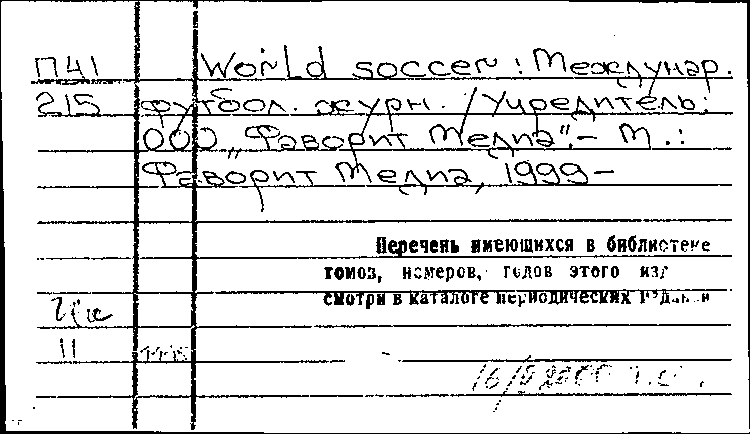 П41 World soccer : Междунар.
215 футбол. журн. / Учредитель:
ООО „Фаворит Медиа“. – М. :
Фаворит Медиа, 1999–
Перечень имеющихся в библиотеке
томов, номеров, годов этого изд
смотри в каталоге периодических
11